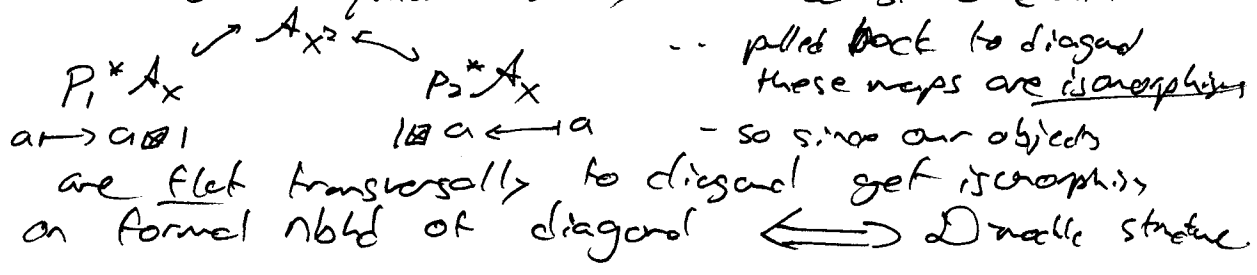 A_{X^2} -- pulled back to diagonal
P_1^* A_X P_2^* A_X these maps are isomorphisms
a ↦ a ⊠ 1 1 ⊠ a ↤ a - so since our objects
are flat transversally to diagonal get isomorphism
on formal nbhd of diagonal ⟺ D module structure.